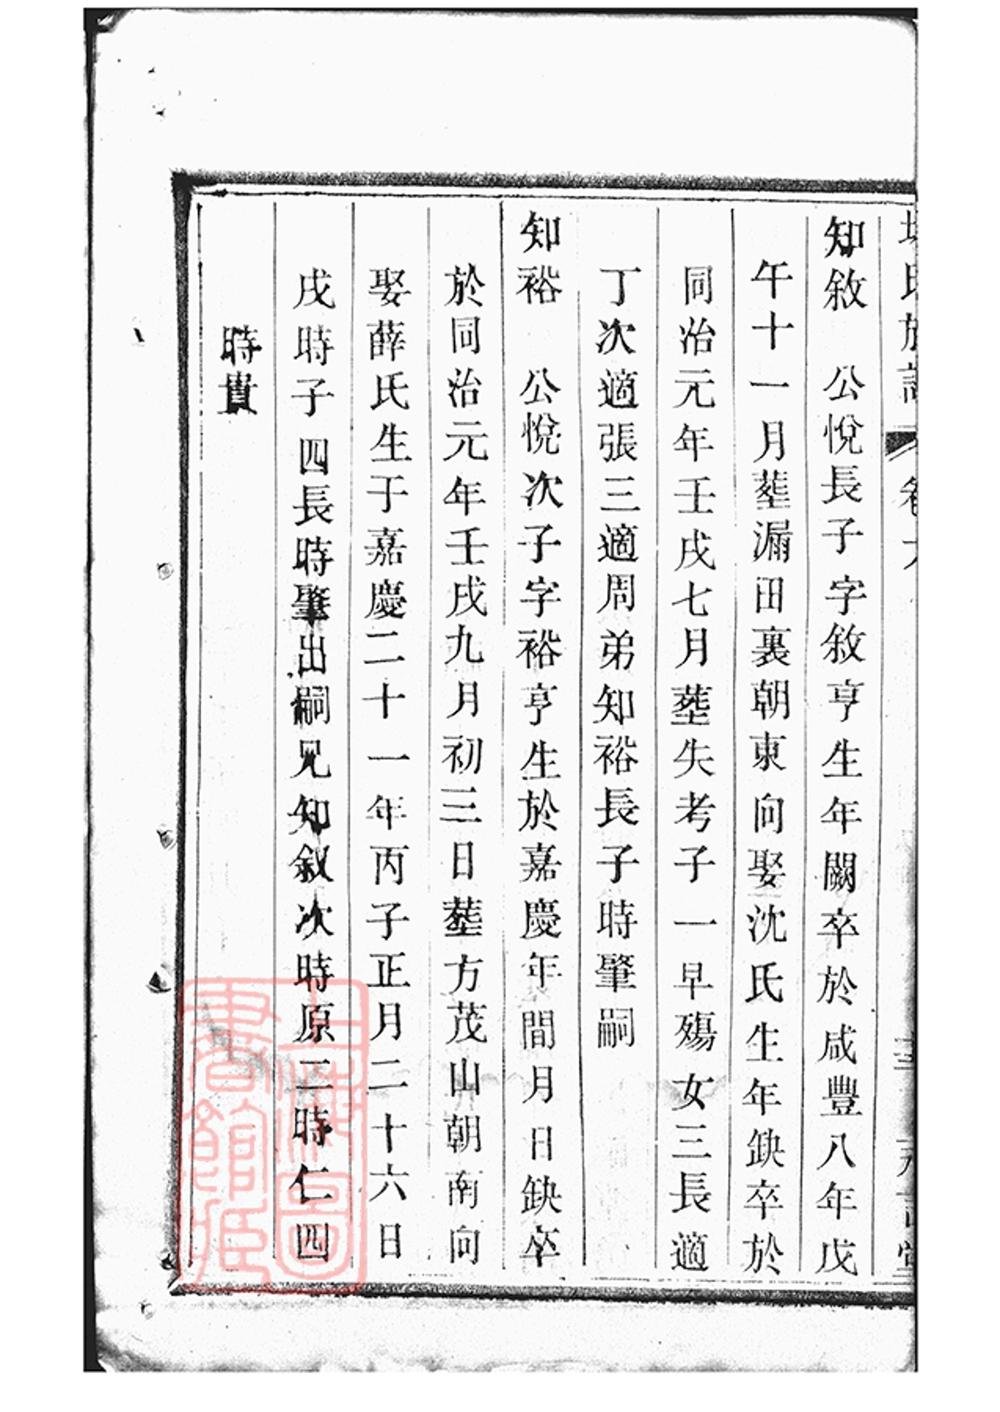 知敘　公悅長子字敘亨生年闕卒於咸豐八年戊
午十一月塟漏田裏朝東向娶沈氏生年缺卒於
同治元年壬戌七月塟失考子一早殤女三長適
丁次適張三適周弟知裕長子時肇嗣
知裕　公悅次子字裕亨生於嘉慶年間月日缺卒
於同治元年壬戌九月初三日塟方茂山朝南向
娶薛氏生于嘉慶二十一年丙子正月二十六日
戌時子四長時肇出嗣兄知敘次時原三時仁四
時貴
上海圖書館藏